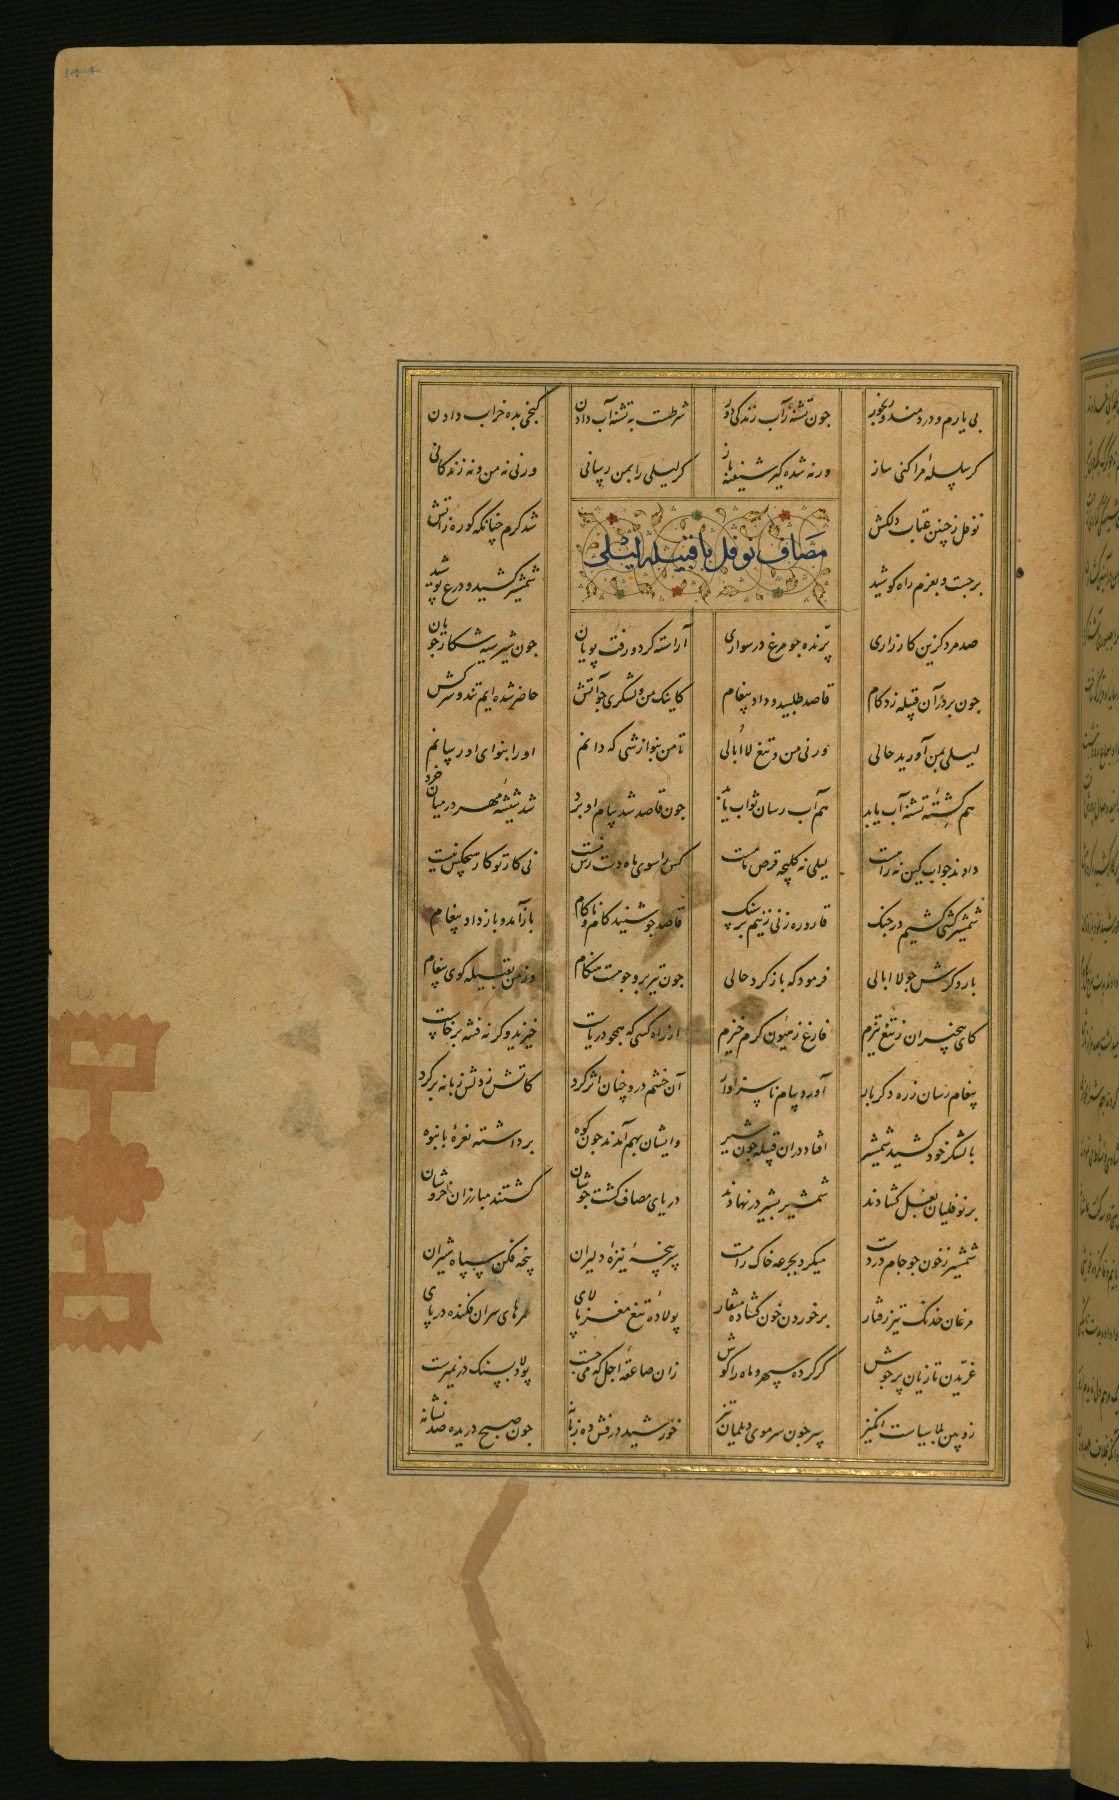 بی یارم و دردمند و رنجور چون تشنه زآب زندگی دور شرطست به تشنه آب دادن گنجی بده خراب دادن
گر سلسلهٔ مرا کنی ساز ورنه شده گیر شیفته باز گر لیلی را بمن رسانی ورنی نه من و نه زندگانی
مصاف نوفل با قبیله لیلی
نوفل ز چنین عتاب دلکش شد گرم چنانکه کوره ز آتش
برجست و بعزم راه کوشید شمشیر کشید و درع پوشید
صد مرد گزین کارزاری پرنده چو مرغ در سواری آراسته کرد و رفت پویان چون شیر سیه شکار جویان
چون بر در آن قبیله زد گام قاصد طلبید و داد پیغام کاینک من و لشکری چو آتش حاضر شده ایم تند و سرکش
لیلی بمن آورید حالی ورنی من و تیغ لاأبالی تا من بنوازشی که دانم او را بنوای او رسانم
هم کشتهٔ تشنه آب یابد هم آب رسان ثواب یابد چون قاصد شد پیام او برد شد شیشهٔ مهر در میان خرد
دادند جواب کین نه راهست لیلی نه کلیچه قرص ماهست کس را سوی ماه دست رس نیست نی کار تو کار هیچکس نیست
شمشیر کشی کشیم در جنگ قاروره زنی زنیم بر سنگ قاصد چو شنید کام و ناکام باز آمد و باز داد پیغام
بار دگرش چو لاابالی فرمود که باز گرد حالی چون تیر برو چو مست هنگام وز من بقبیله گوی پیغام
کای بیخبران ز تیغ تیزم فارغ ز هیون گرم خیزم از راه کسی که همچو دریاست خیزید وگرنه فتنه برخاست
پیغام رسان زره دگر بار آورد پیام ناسزاوار آن خشم درو چنان اثر کرد کاتش ز دلش زبانه بر کرد
با لشکر خود کشید شمشیر افتاد در آن قبیله چون شیر وایشان بهم آمدند چون کوه برداشته نعرهٔ بانبوه
بر نوفلیان بغل گشادند شمشیر بشیر در نهادند دریای مصاف گشت جوشان گشتند مبارزان خروشان
شمشیر ز خون چو جام در دست میکرد بجرعه خاک را مست سرپنچهٔ نیزهٔ دلیران پنجه فکن سپاه شیران
مرغان خدنگ تیز رفتار برخوردن خون گشاده منقار پولادهٔ تیغ مغز پالای سرهای سران فکنده در پای
غریدن تازیان پر جوش کر کرده سپهر و ماه را گوش زان صاعقهٔ اجل که می جست پولاد بسنگ در نمیرست
زوپین بلا سیاست انگیز سر چون سر موی دیلمان تیز خورشید درفش ده زبانه چون صبح دریده صد نشانه